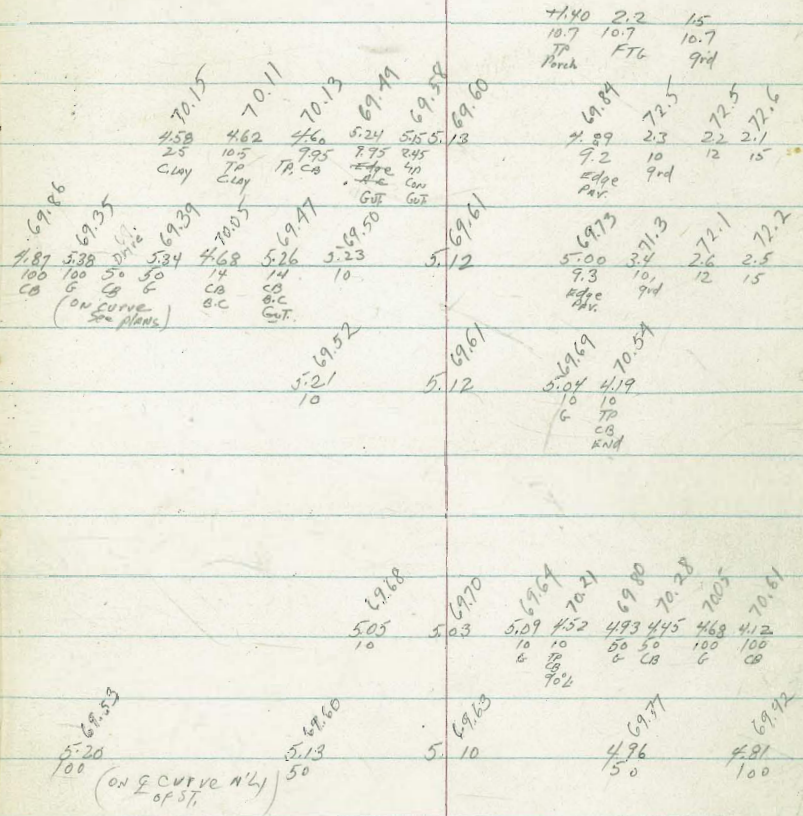 +1.40 2.2 1.5
10.7 10.7 10.7
TP FTG grd
Porch
70.15 70.11 70.13 69.49 69.58 69.60 69.84 72.5 72.5 72.6
4.58 4.62 4.60 5.24 5.15 5.13 4.89 2.3 2.2 2.1
25 10.5 9.95 9.95 9.45 9.2 10 12 15
CLAY TP TP.CB Edge Lip Edge grd
CLAY A.C CON PAV.
GUT. GUT.
69.86 69.35 69.39 70.05 69.47 69.50 69.61 69.73 71.3 72.1 72.2
4.87 5.38 Drive 5.34 4.68 5.26 5.23 5.12 5.00 3.4 2.6 2.5
100 100 50 50 14 14 10 9.3 10 12 15
CB G CB G CB CB Edge grd
(ON CURVE B.C B.C PAV.
See plans) GUT.
69.52 69.61 69.69 70.54
5.21 5.12 5.04 4.19
10 10 10
G TP
CB
END
69.68 69.70 69.64 70.21 69.80 70.28 70.05 70.61
5.05 5.03 5.09 4.52 4.93 4.45 4.68 4.12
10 10 10 50 50 100 100
G TP G CB G CB
CB
90%
69.53 69.60 69.63 69.77 69.92
5.20 5.13 5.10 4.96 4.81
100 50 50 100
(ON ℄ CURVE N'LY
OF ST.)